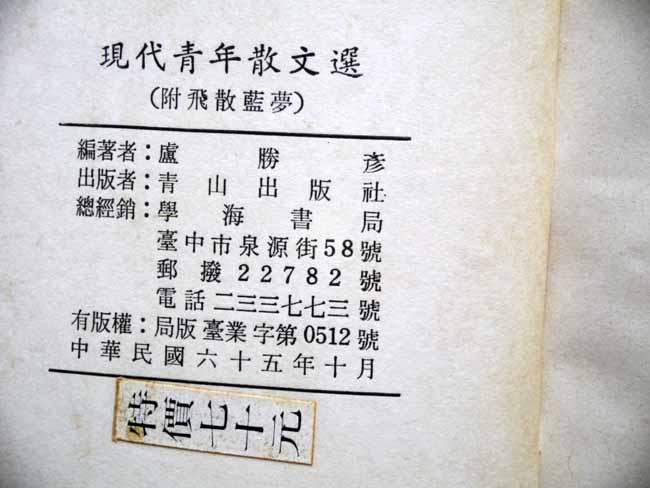 現代青年散文選
(附飛散藍夢)
編著者:盧勝彥
出版者:青山出版社
總經銷:學海書局
臺中市泉源街58號
郵撥22782號
電話二三三七七三號
有版權:局版臺業字第0512號
中華民國六十五年十月
特價七十元